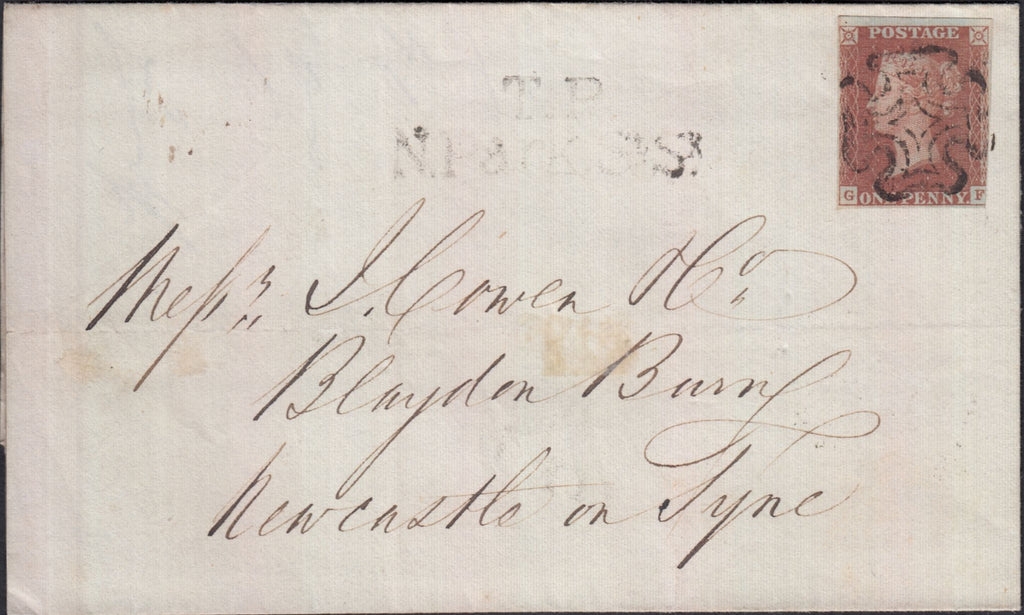 POSTAGE
G ONE PENNY. F
T.P
Messrs. J. Cowen & Co.
Blaydon Burn
Newcastle on Tyne